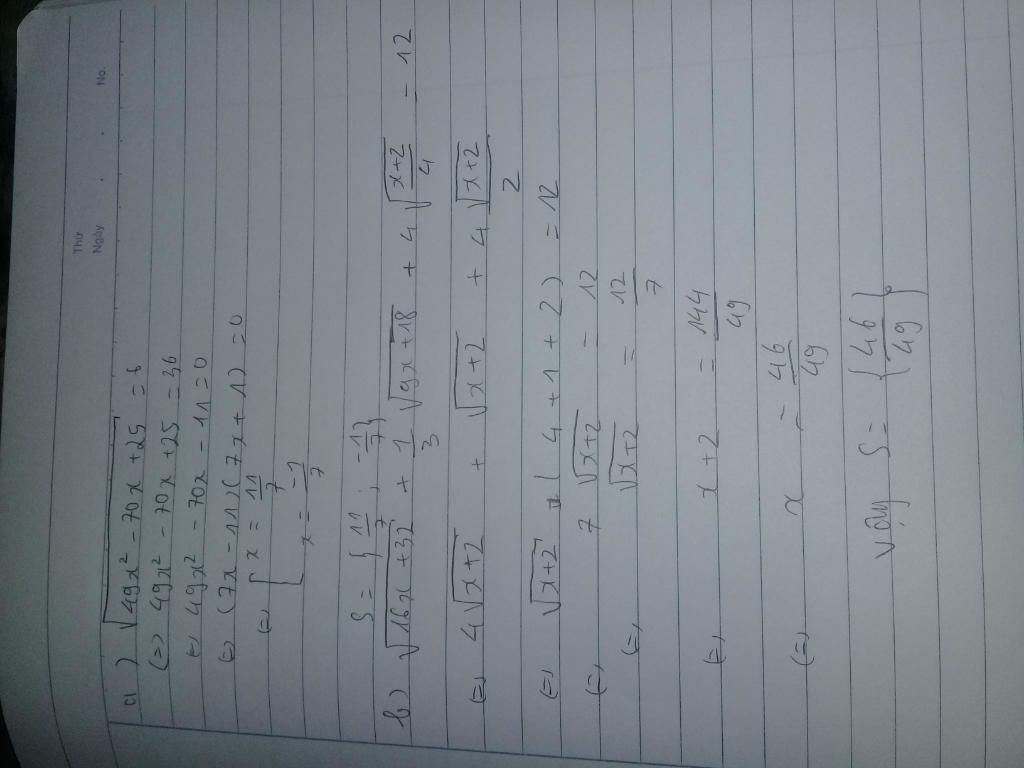 Thứ
Ngày . . No.
a) √49x² - 70x + 25 = 6
(=) 49x² - 70x + 25 = 36
(=) 49x² - 70x - 11 = 0
(=) (7x - 11)(7x + 1) = 0
(=) [ x = 11/7
x = -1/7
S = { 11/7 ; -1/7 }
b) √16x + 32 + 1/3 √9x + 18 + 4 √(x+2)/4 = 12
(=) 4√x+2 + √x+2 + 4 √x+2/2
(=) √x+2 ( 4 + 1 + 2 ) = 12
(=) 7 √x+2 = 12
(=) √x+2 = 12/7
(=) x + 2 = 144/49
(=) x = 46/49
Vậy S = { 46/49 }.